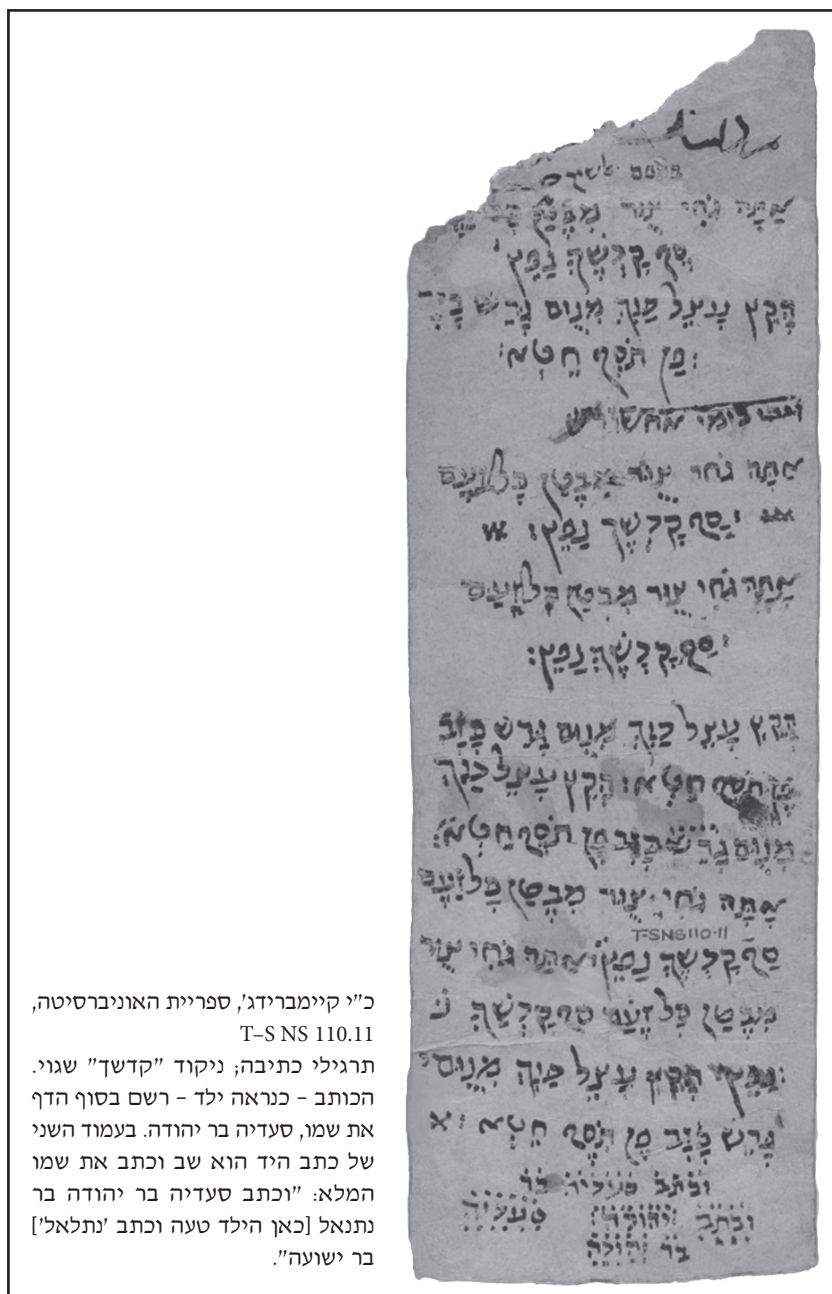 אתה גחי צור מבטן
סף קדשך נפץ
הקץ עצל כנך מנום גרש
פן תסף חטא:
ויהי בימי אחשורוש
אתה גחי צור מבטן כל זעם
סף קדשך נפץ: א
אתה גחי צור מבטן כל זעם
סף קדשך נפץ:
הקץ עצל כנך מנום גרש כזב
פן תסף חטא: הקץ עצל כנך
מנום גרש כזב פן תסף חטא:
אתה גחי צור מבטן כל זעם
T-SNS110·11
סף קדשך נפץ: אתה גחי צור
מבטן כל זעם סף קדשך נ
נפץ: הקץ עצל כנך מנום
גרש כזב פן תסף חטא: א
וכתב סעדיה בר
וכתב יהודה סעדיה
בר יהודה
כ"י קיימברידג', ספריית האוניברסיטה,
T–S NS 110.11
תרגילי כתיבה; ניקוד "קדשך" שגוי.
הכותב – כנראה ילד – רשם בסוף הדף
את שמו, סעדיה בר יהודה. בעמוד השני
של כתב היד הוא שב וכתב את שמו
המלא: "וכתב סעדיה בר יהודה בר
נתנאל [כאן הילד טעה וכתב 'נתלאל']
בר ישועה".